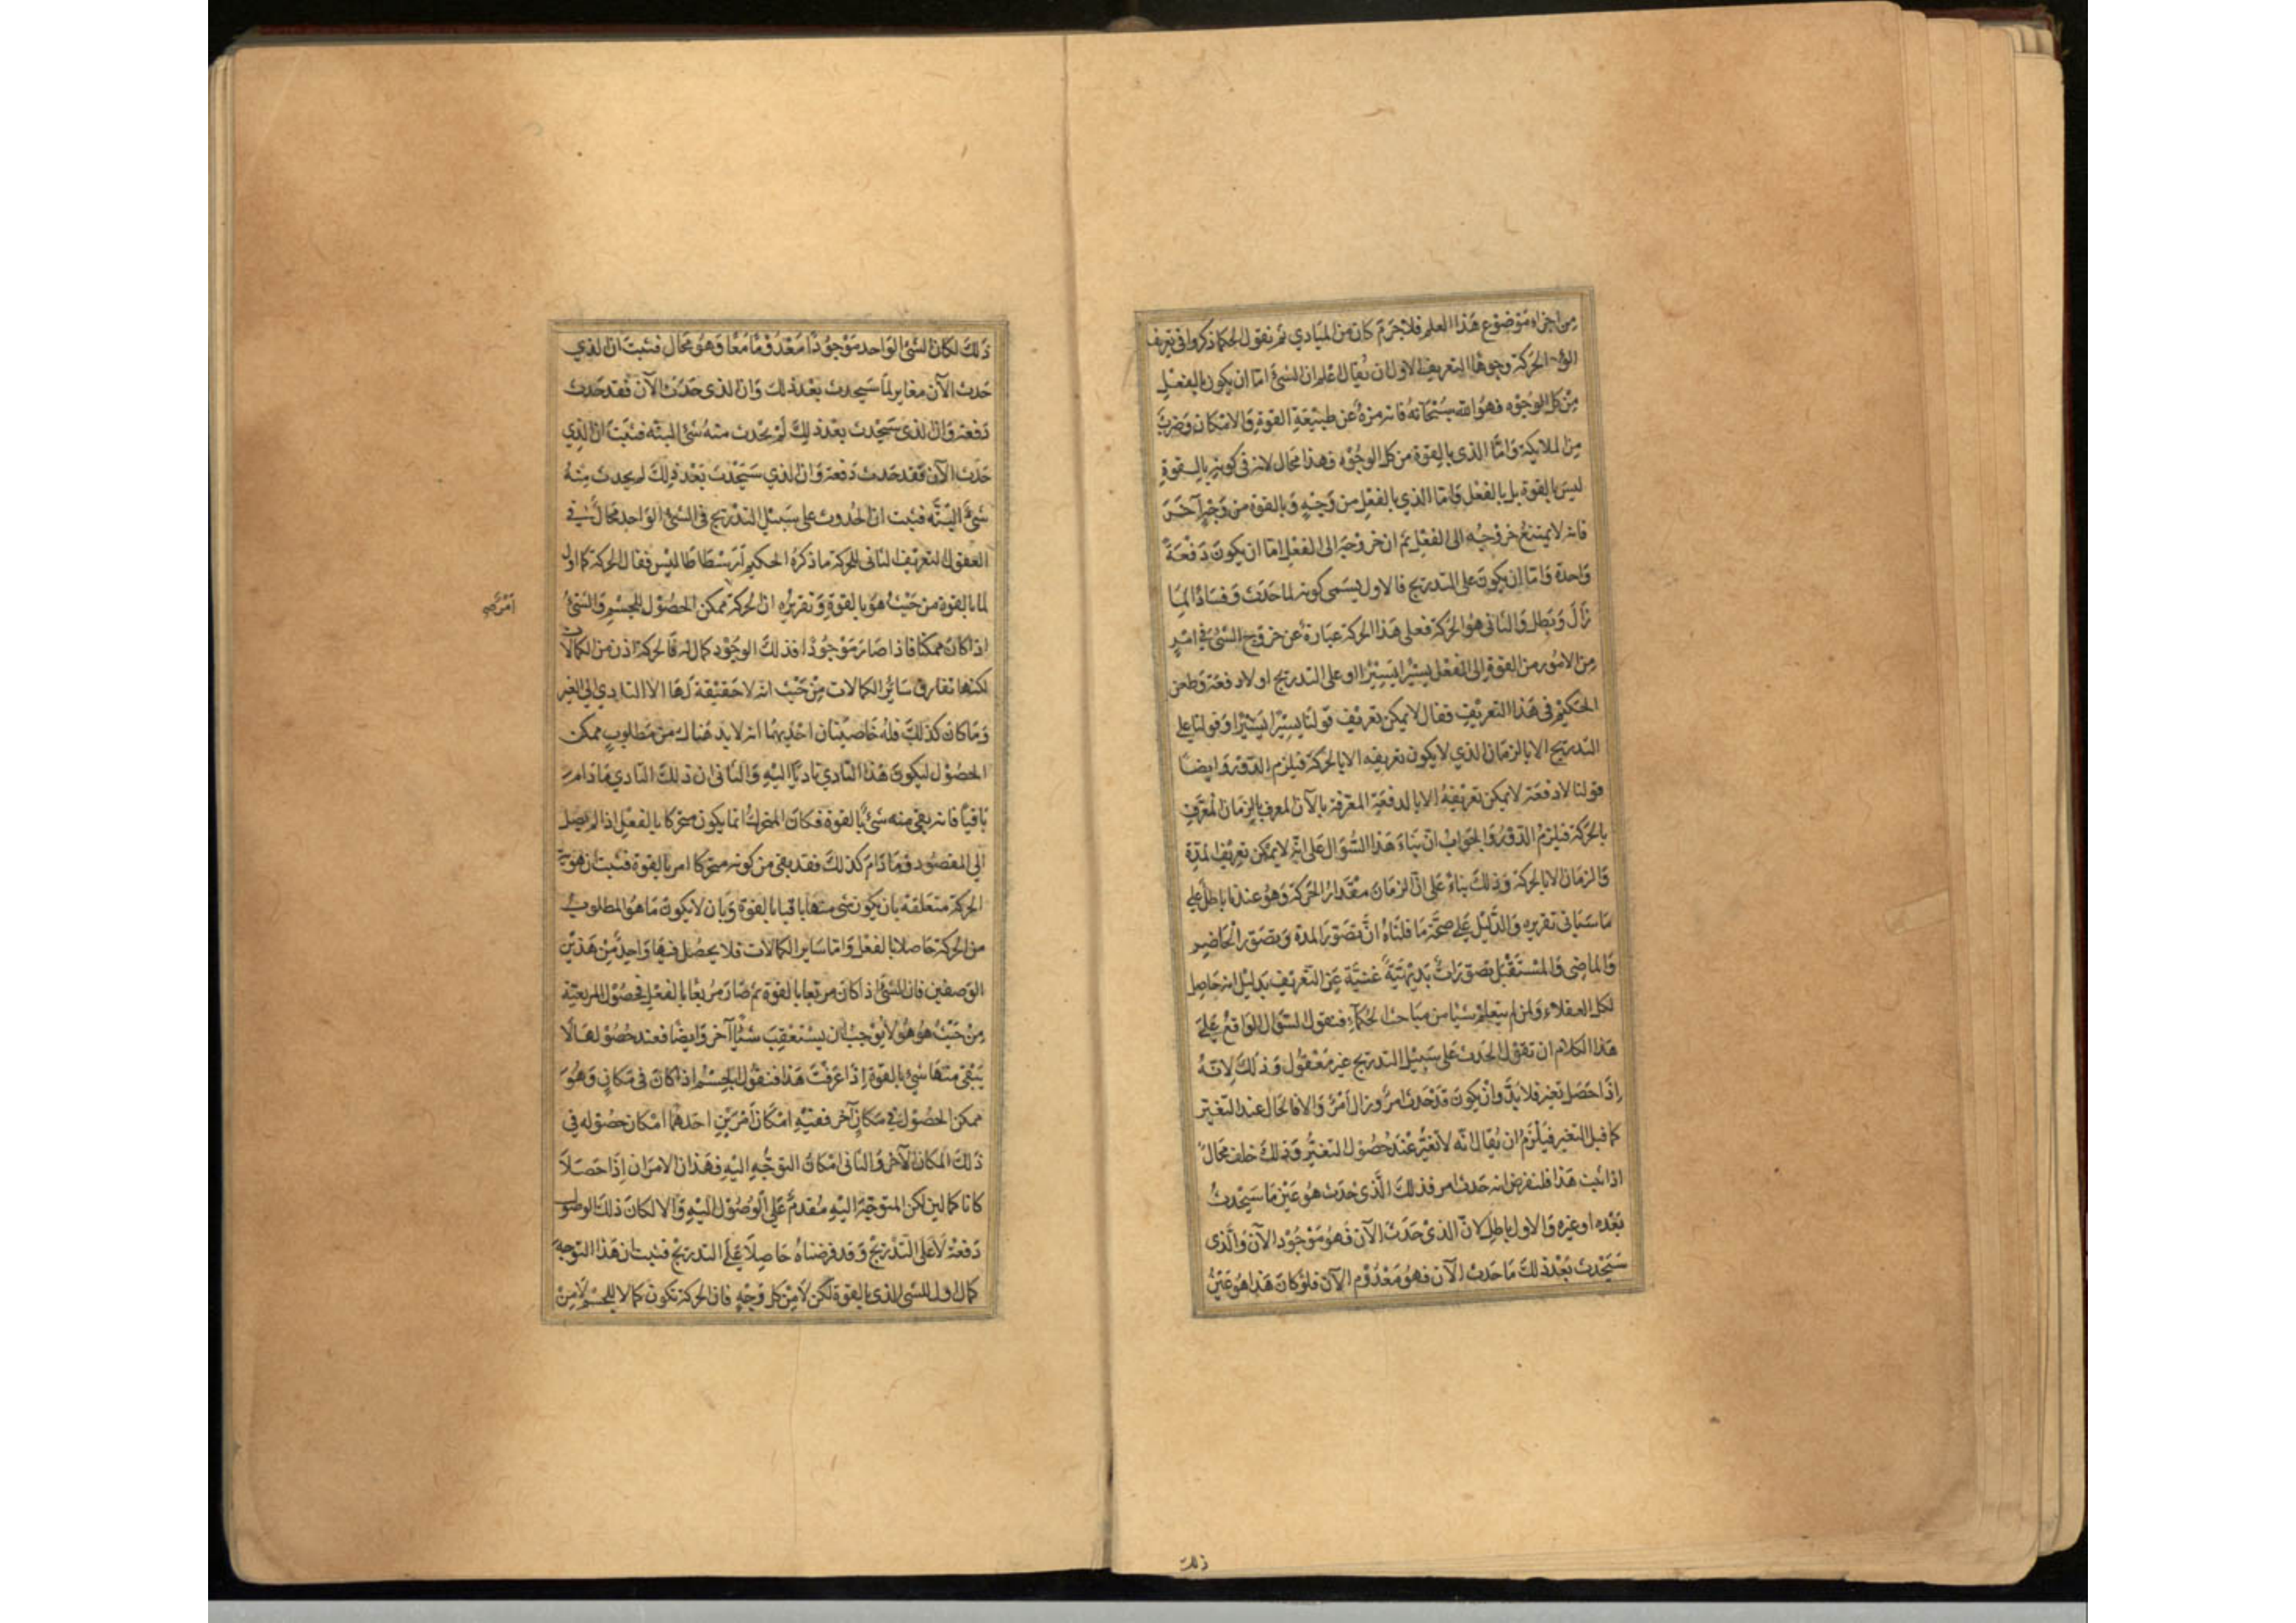 من اجزاء موضوع هذا العلم فلاجرم كان من المبادي ثم نقول الحكما ذكروا في تعريف
الحركة وجوها التعريف الاول ان يقال اعلم ان الشئ اما ان يكون بالفعل
من كل الوجوه فهو الله سبحانه فانه منزه عن طبيعة القوة والامكان وضرب
من الملايكة واما الذي بالقوة من كل الوجوه فهذا محال لانه في كونه بالقوة
ليس بالقوة بل بالفعل واما الذي بالفعل من وجه وبالقوة من وجه آخر
فانه لا يمتنع خروجه الى الفعل ثم ان خروجه الى الفعل اما ان يكون دفعة
واحدة واما ان يكون على التدريج فالاول يسمى كونه لما حدث وفسادا لما
زال وبطل والثانى هو الحركة فعلى هذا الحركة عبارة عن خروج الشئ في امر
من الامور من القوة الى الفعل يسيرا يسيرا او على التدريج او لا دفعة وطعن
الحكيم في هذا التعريف فقال لا يمكن تعريف قولنا يسيرا يسيرا وقولنا على
التدريج الا بالزمان الذي لا يكون تعريفه الا بالحركة فيلزم الدور وايضا
قولنا لا دفعة لا يمكن تعريفه الا بالدفعة المعرفة بالآن المعرف بالزمان المعرف
بالحركة فيلزم الدور والجواب ان بناء هذا السؤال على انه لا يمكن تعريف المدة
والزمان الا بالحركة وذلك بناء على ان الزمان مقدار الحركة وهو عندنا باطل على
ما سياتى تقريره والدليل على صحة ما قلناه ان تصور المدة وتصور الحاضر
والماضى والمستقبل تصورات بديهية غنية عن التعريف بدليل انه حاصل
لكل العقلاء ولمن لم يتعلم شيا من مباحث الحكماء فنقول السؤال الواقع على
هذا الكلام ان نقول الحدث على سبيل التدريج غير معقول وذلك لانه
اذا حصل تغير فلا بد وان يكون قد حدث امر وزال امر والا فالحال عند التغير
كما قبل التغير فيلزم ان يقال انه لا تغير عند حصول التغير وذلك خلف محال
اذا ثبت هذا فلنفرض انه حدث امر فذلك الذى حدث هو عين ما سيحدث
بعده او غيره والاول باطل لان الذى حدث الآن فهو موجود الآن والذى
سيحدث بعد ذلك ما حدث الآن فهو معدوم الآن فلو كان هذا هو عين
ذلك
ذلك لكان الشئ الواحد موجودا معدوما معا وهو محال فثبت ان الذي
حدث الآن مغاير لما سيحدث بعد ذلك وان الذى حدث الآن فقد حدث
دفعة وان الذى سيحدث بعد ذلك لم يحدث منه شئ البته فثبت ان الذي
حدث الآن فقد حدث دفعة وان الذي سيحدث بعد ذلك لم يحدث منه
شئ البته فثبت ان الحدوث على سبيل التدريج فى الشئ الواحد محال فى
العقول التعريف الثانى للحركة ما ذكره الحكيم ارسطاطاليس فقال الحركة كمال اول
لما بالقوة من حيث هو بالقوة وتقريره ان الحركة ممكن الحصول للجسم والشئ
اذا كان ممكنا فاذا صار موجودا فذلك الوجود كمال له فالحركة اذن من الكمالات
لكنها تفارق سائر الكمالات من حيث انه لا حقيقة لها الا التادي الى الغير
وما كان كذلك فله خاصيتان احديهما انه لا بد هناك من مطلوب ممكن
الحصول ليكون هذا التادي تاديا اليه والثانى ان ذلك التادي ما دام
باقيا فانه بقى منه شئ بالقوة فكان المتحرك انما يكون متحركا بالفعل اذا لم يصل
الى المقصود وما دام كذلك فقد بقى من كونه متحركا امر بالقوة فثبت ان هوية
الحركة متعلقة بان يكون شى منها باقيا بالقوة وبان لا يكون ما هو المطلوب
من الحركة حاصلا بالفعل واما ساير الكمالات فلا يحصل فيها واحد من هذين
الوصفين فان الشئ اذا كان مربعا بالقوة ثم صار مربعا بالفعل فحصول المربعية
من حيث هو هو لا يوجب ان يستعقب شيا آخر وايضا فعند حصولها لا
يبقى منها شئ بالقوة اذا عرفت هذا فنقول الجسم اذا كان فى مكان وهو
ممكن الحصول في مكان آخر ففيه امكان امرين احدهما امكان حصوله فى
ذلك المكان الآخر والثانى امكان التوجه اليه فهذان الامران اذا حصلا
كانا كمالين لكن المتوجه اليه مقدم على الوصول اليه والا لكان ذلك الوصول
دفعة لا على التدريج وقد فرضناه حاصلا على التدريج فثبت ان هذا التوجه
كمال اول للشى الذى بالقوة لكن لا من كل وجه فان الحركة تكون كمالا للجسم لا من